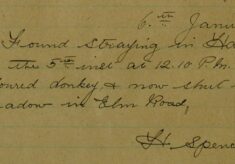 6.th Janu
Found straying in Ha
the 5th inst at 12.10 P.m.
oured donkey, & now shut
eadow in Elm Road,
H. Spenc